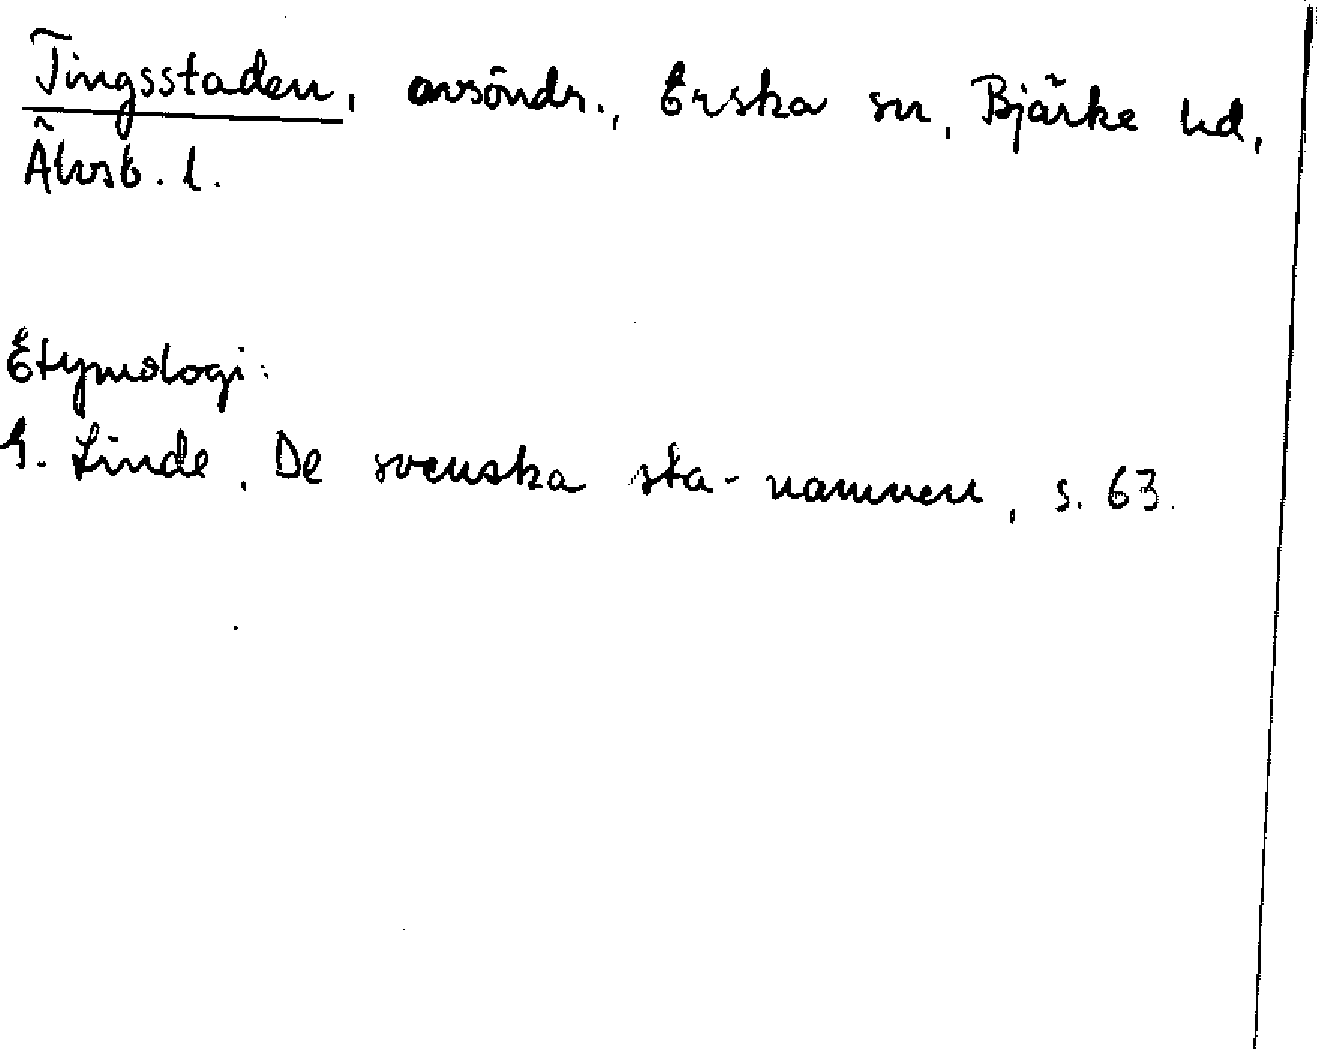 Tingsstaden, avsöndr., Erska sn, Bjärke hd,
Älvsb. l.
Etymologi:
G. Linde, De svenska sta-namnen, s. 63.